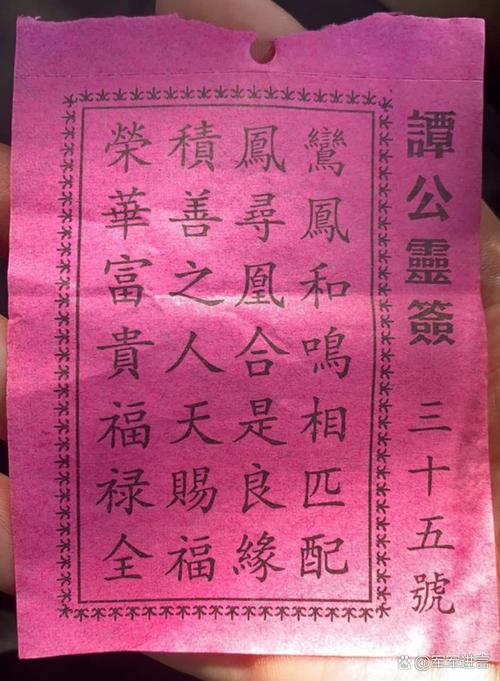 譚公靈簽 三十五號
鸞鳳和鳴相匹配
鳳尋凰合是良緣
積善之人天賜福
榮華富貴福禄全